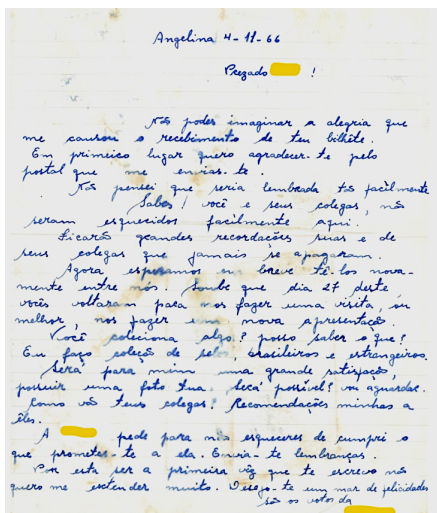 Angelina 4-11-66
Prezado !
Não podes imaginar a alegria que
me causou o recebimento de teu bilhete.
Em primeiro lugar quero agradecer-te pelo
postal que me envias-te.
Não pensei que seria lembrada tão facilmente
Sabes! você e seus colegas, não
seram esquecidos facilmente aqui.
Ficarão grandes recordações suas e de
seus colegas que jamais se apagaram.
Agora esperamos em breve tê-los nova-
mente entre nós. Soube que dia 27 deste
vocês voltaram para nos fazer uma visita, ou
melhor, nos fazer uma nova apresentação.
Você coleciona algo? posso saber o que?
Eu faço coleção de selos, brasileiros e estrangeiros.
Será para mim uma grande satisfação,
possuir uma foto tua. Será possível? vou aguardar.
Como vão teus colegas? Recomendações minhas a
êles.
A pede para não esqueceres de cumpri o
que prometes-te a ela. Envia-te lembranças.
Por esta ser a primeira vêz que te escrevo não
quero me extender muito. Desejo-te um mar de felicidades
são os votos da